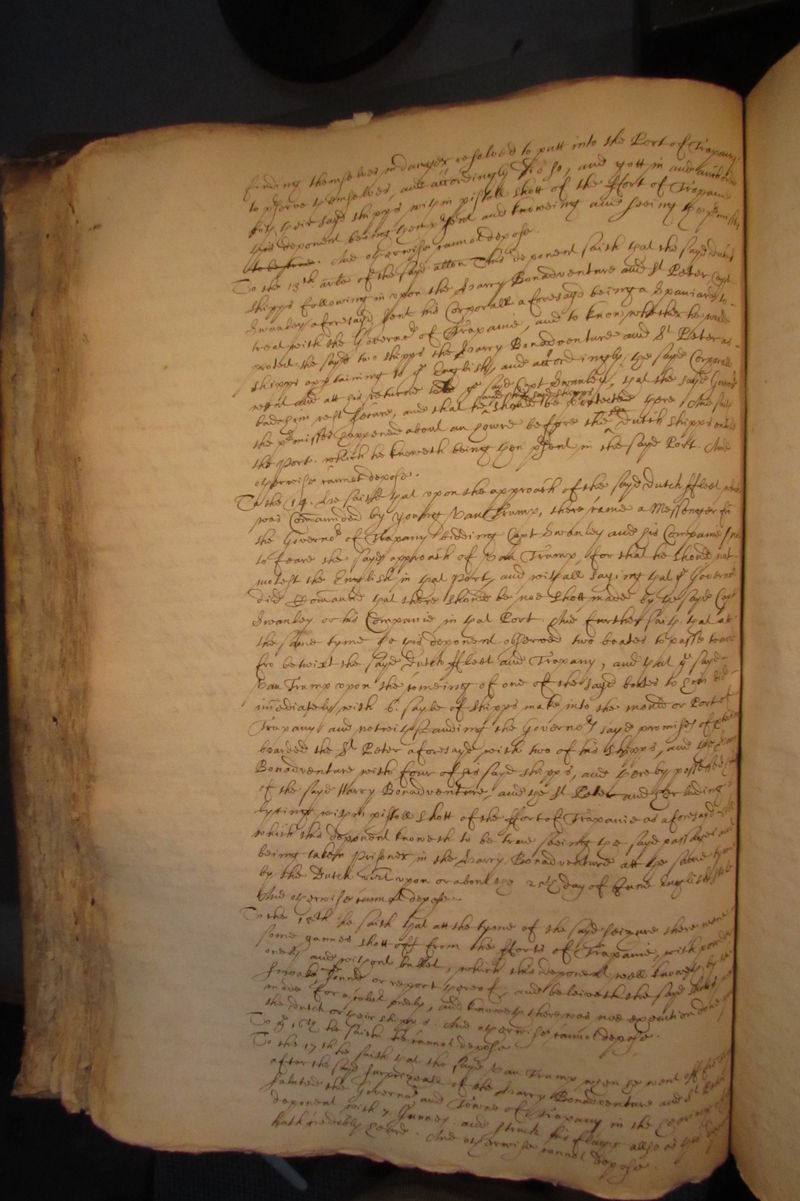 finding themselves in danger resolved to putt into the Port of Trapany
to preserve themselves, and accordingly did so, and gott in and
their sayd shipps within pistoll shott of the ffort of Trapanie
this deponent being then present and knoweing and seeing the premisses
to be true. And otherwise cannot depose.
To the 13th arle of the sayd allon This deponent saith that the sayd dutch
shipps following in upon the Harry Bonadventure and St Peter Capt
Swanley aforesayd sent his Corporall aforesayd being a Spaniard to
treat with the Governor of Trapanie, and to know whether he would
protect the sayd two shipps the Harry Bonadventure and St Peter as
shipps apptaining to ye English, and accordingly the sayd Corporall
went and att his returne told ye sayd Capt Swanley, that the sayd Governor
badd him rest secure, and that he and his sayd shipps should be protected there And saith
the premisses happened about an howre before the sayd dutch shipps
the Port. which he knoweth being then present in the sayd Port. And
otherwise cannot depose.
To the 14. he saith that upon the approach of the sayd dutch ffleet which
was Commanded by young Van Trump, there came a Messenger from
the Governor of Trapany bidding Capt Swanley and his Companie not
to feare the sayd approach of Van Trump, for that he should not
molest the English in that Port, and withall saying that ye Governor
did Command that there should be noe shott made by the sayd Capt
Swanley or his Companie in that Port. And further saith that at
the same tyme he this deponent observed two boates to passe to and
fro betwixt the sayd dutch ffleet and Trapany, and that ye sayd
Van Trump upon the comeing of one of the sayd boates to him did
immediately with 6. sayle of shipps make into the mould or Port of
Trapany and notwithstanding the Governors sayd promises of
boarded the St Peter aforesayd with two of his shipps, and the Harry
Bonadventure with four of his sayd shipps, and thereby possessed
of the sayd Harry Bonadventure, and the St Peter and their ladings
lyeing within pistoll shott of the ffort of Trapanie as aforesayd
which this deponent knoweth to be true seeing the sayd passages and
being taken prisoner in the Harry Bonadventure att the same tyme
by the Dutch upon or about the 2th day of June English stile
And otherwise cannot depose.
To the 15th he saith that att the tyme of the sayd seizure there were
some gunnes shott off from the fforts of Trapanie, with powder
onely and without bullet, which this deponent well knoweth by the
smoake, sound or report thereof, and beleiveth the sayd shotts
made for a onely, and knoweth there was noe execution done
the dutch or their shipps. And otherwise cannot depose.
To ye 16th he saith he cannot depose
To the 17th he saith that the sayd Van Trump when he went off
after the sayd surprizall of the Harry Bonadventure and St Peter
saluted the Governor and Towne of Trapany in the
deponent with 7 gunnes. and struck his flagg allso as this
hath credibly heard. And otherwise cannot depose.